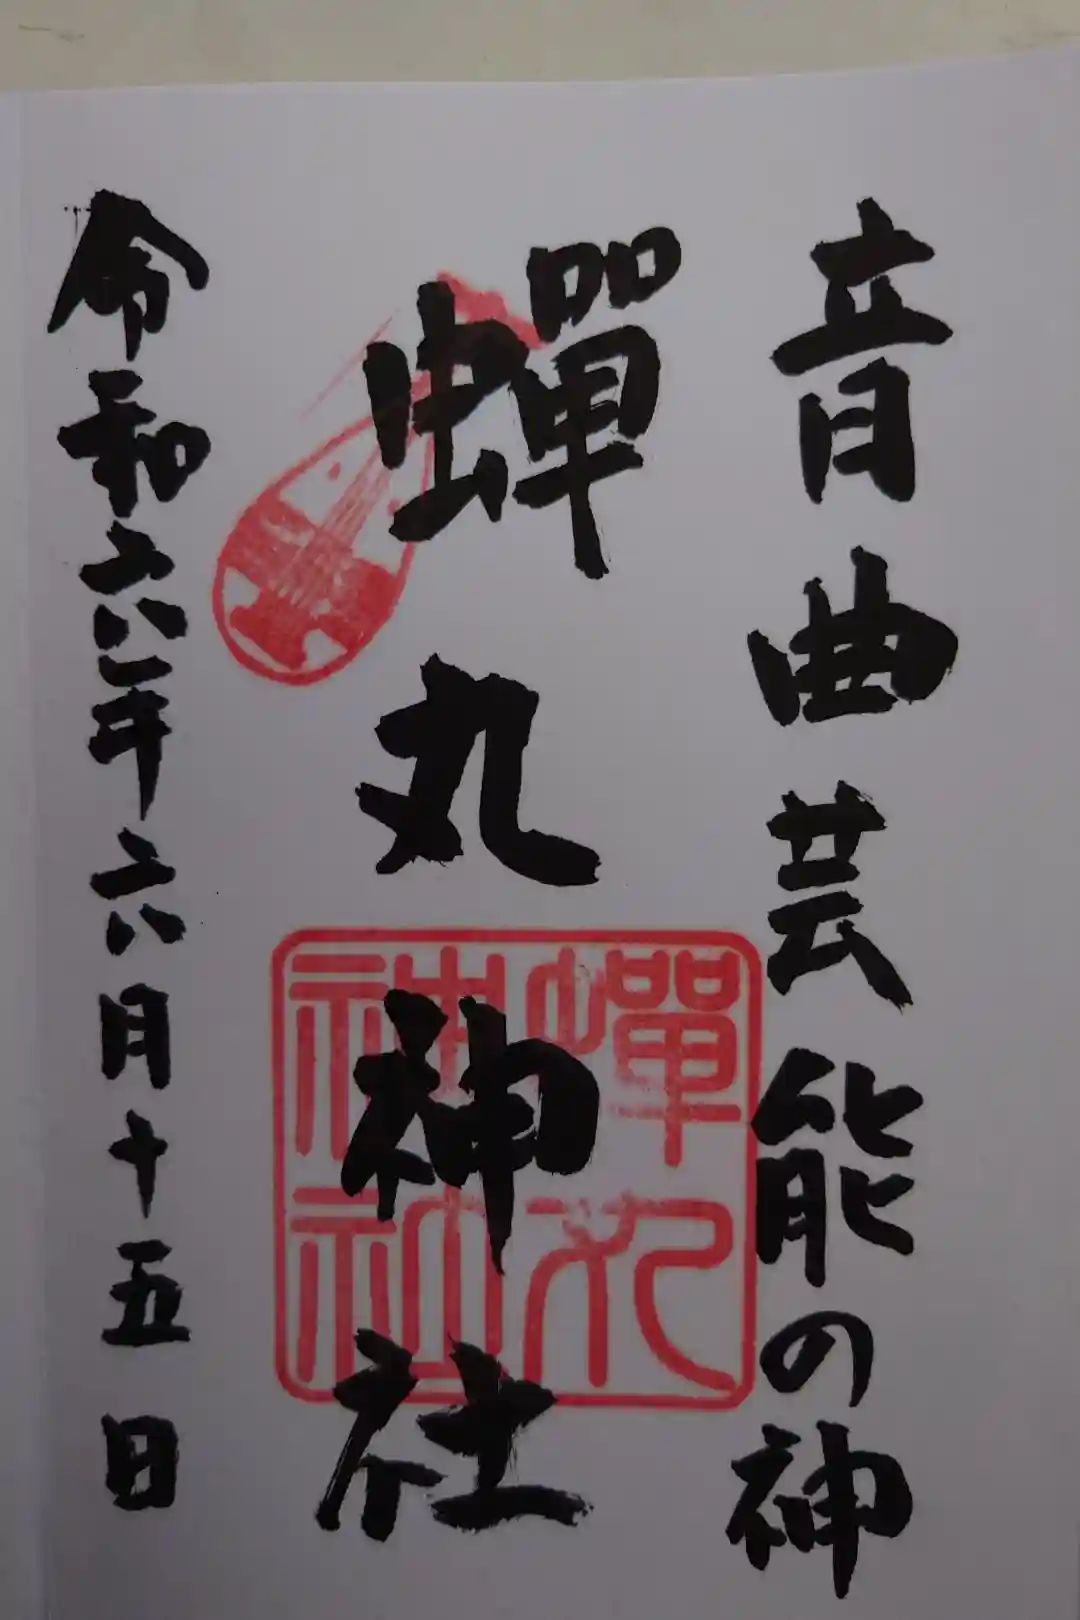 音曲芸能の神
蟬丸神社
蟬丸
神社
令和六年六月十五日